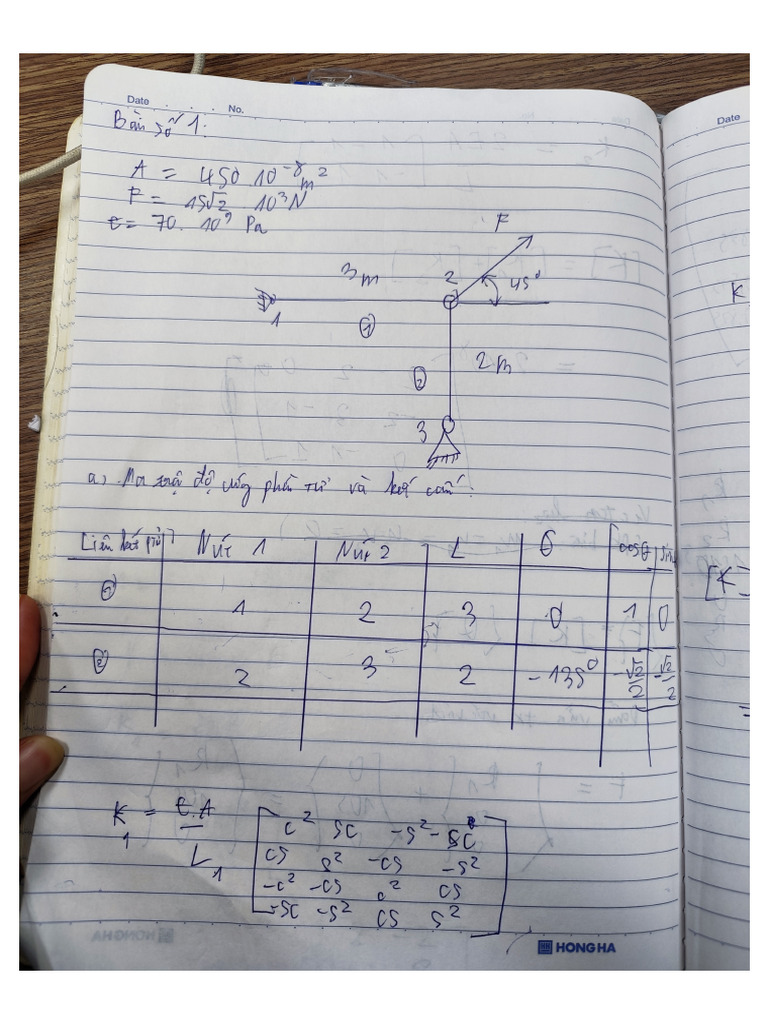 Date No.
Date
Bàn số 1:
A = 450.10⁻⁸ m²
F = 15√2 .10³ N
E = 70. 10⁹ Pa
F
3m 2 45°
1 ①
② 2m
3
a) Ma trận độ cứng phần tử và kết cấu:
Nút 1 Nút 2 L θ cosθ sin
① 1 2 3 0 1 0
② 2 3 2 -135° -√2/2 -√2/2
K₁ = E.A/L₁
c² sc -s² -sc
cs s² -cs -s²
-c² -cs c² cs
-sc -s² cs s²
HONG HA
K
[K]